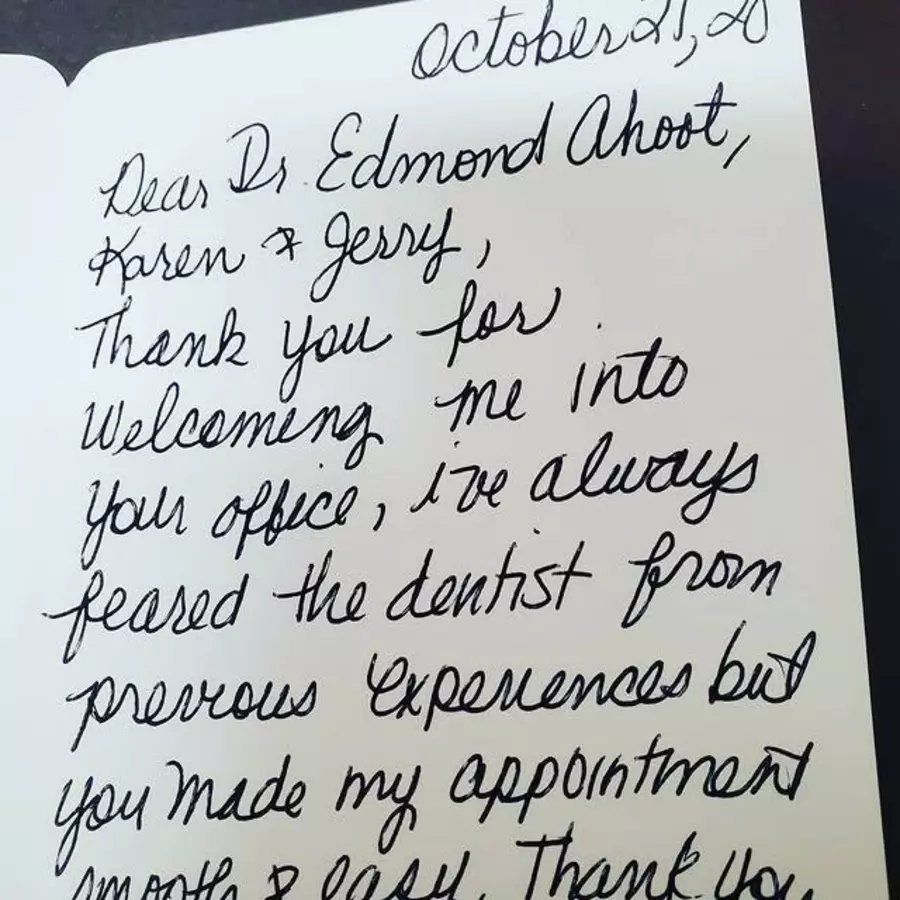 October 21, 20
Dear Dr. Edmond Ahoot,
Karen & Jerry,
Thank you for
Welcoming me into
your office, i've always
feared the dentist from
previous experiences but
you made my appointment
smooth & easy. Thank you